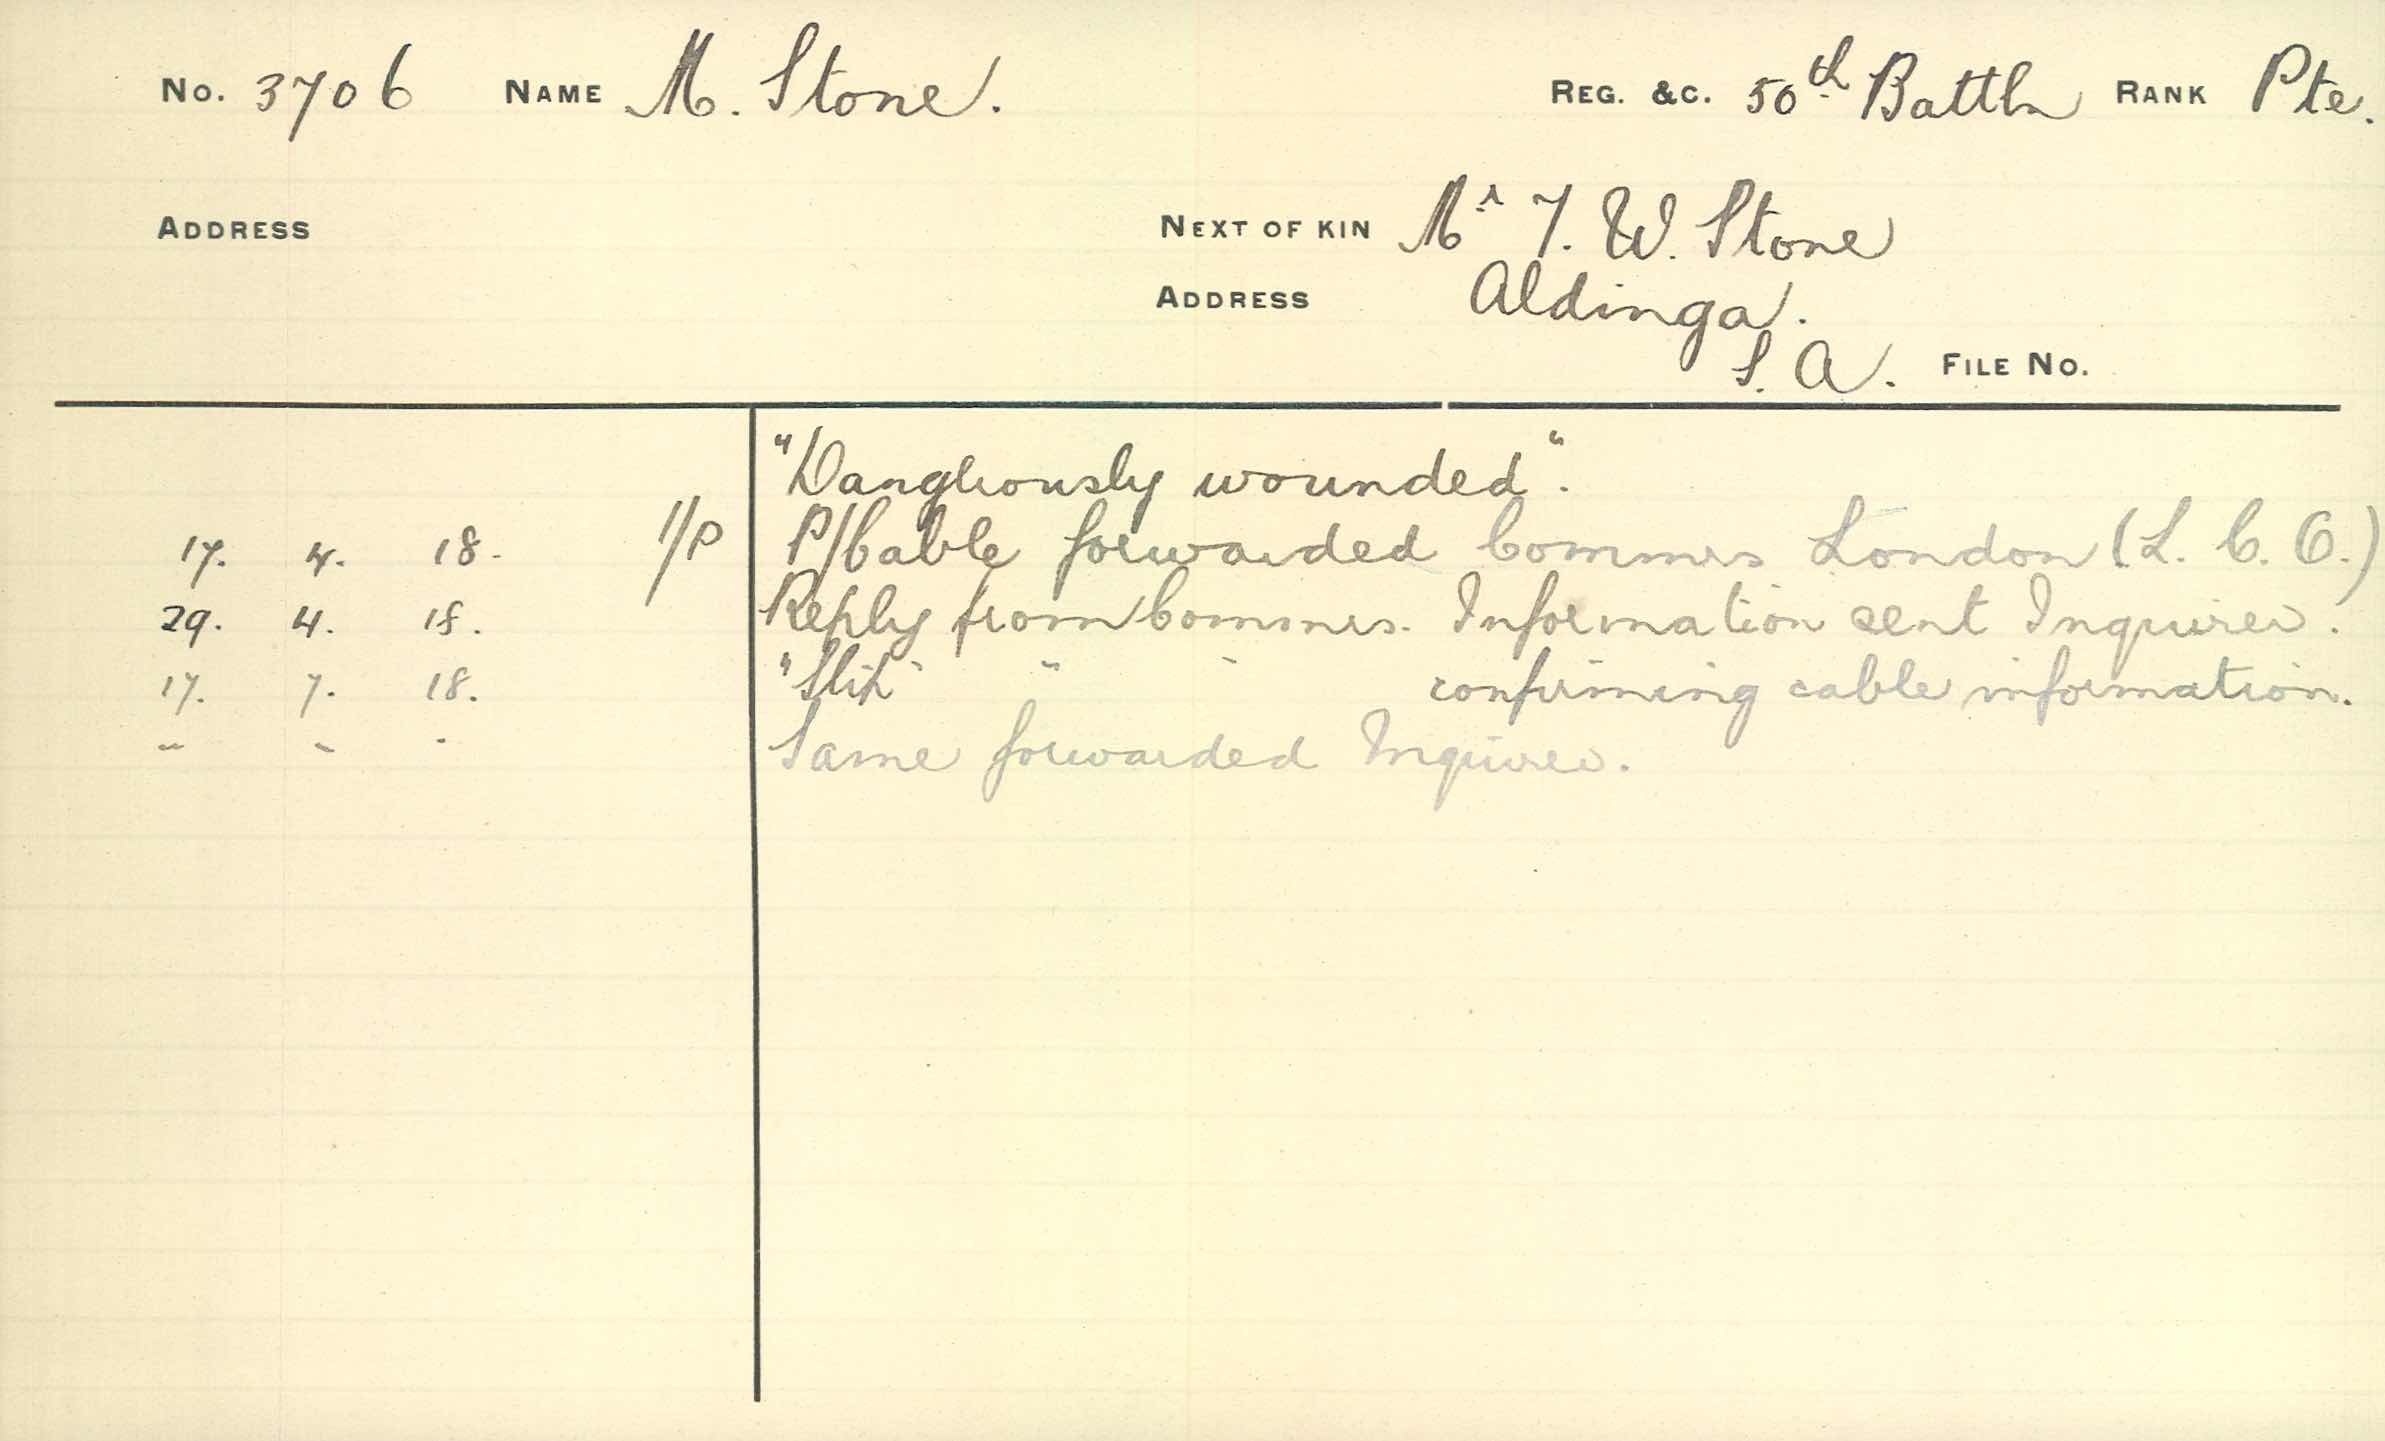 No. 3706 NAME M. Stone. REG. &C. 50th Battln RANK Pte.
ADDRESS NEXT OF KIN Mr T. W. Stone
ADDRESS Aldinga.
S. A. FILE No.
"Dangerously wounded".
17. 4. 18. 1/P P/Cable forwarded Commrs London (L. C. O.)
29. 4. 18. Reply from Commrs. Information sent Inquirer.
17. 7. 18. "Slip" " " confirming cable information.
" " " Same forwarded Inquirer.